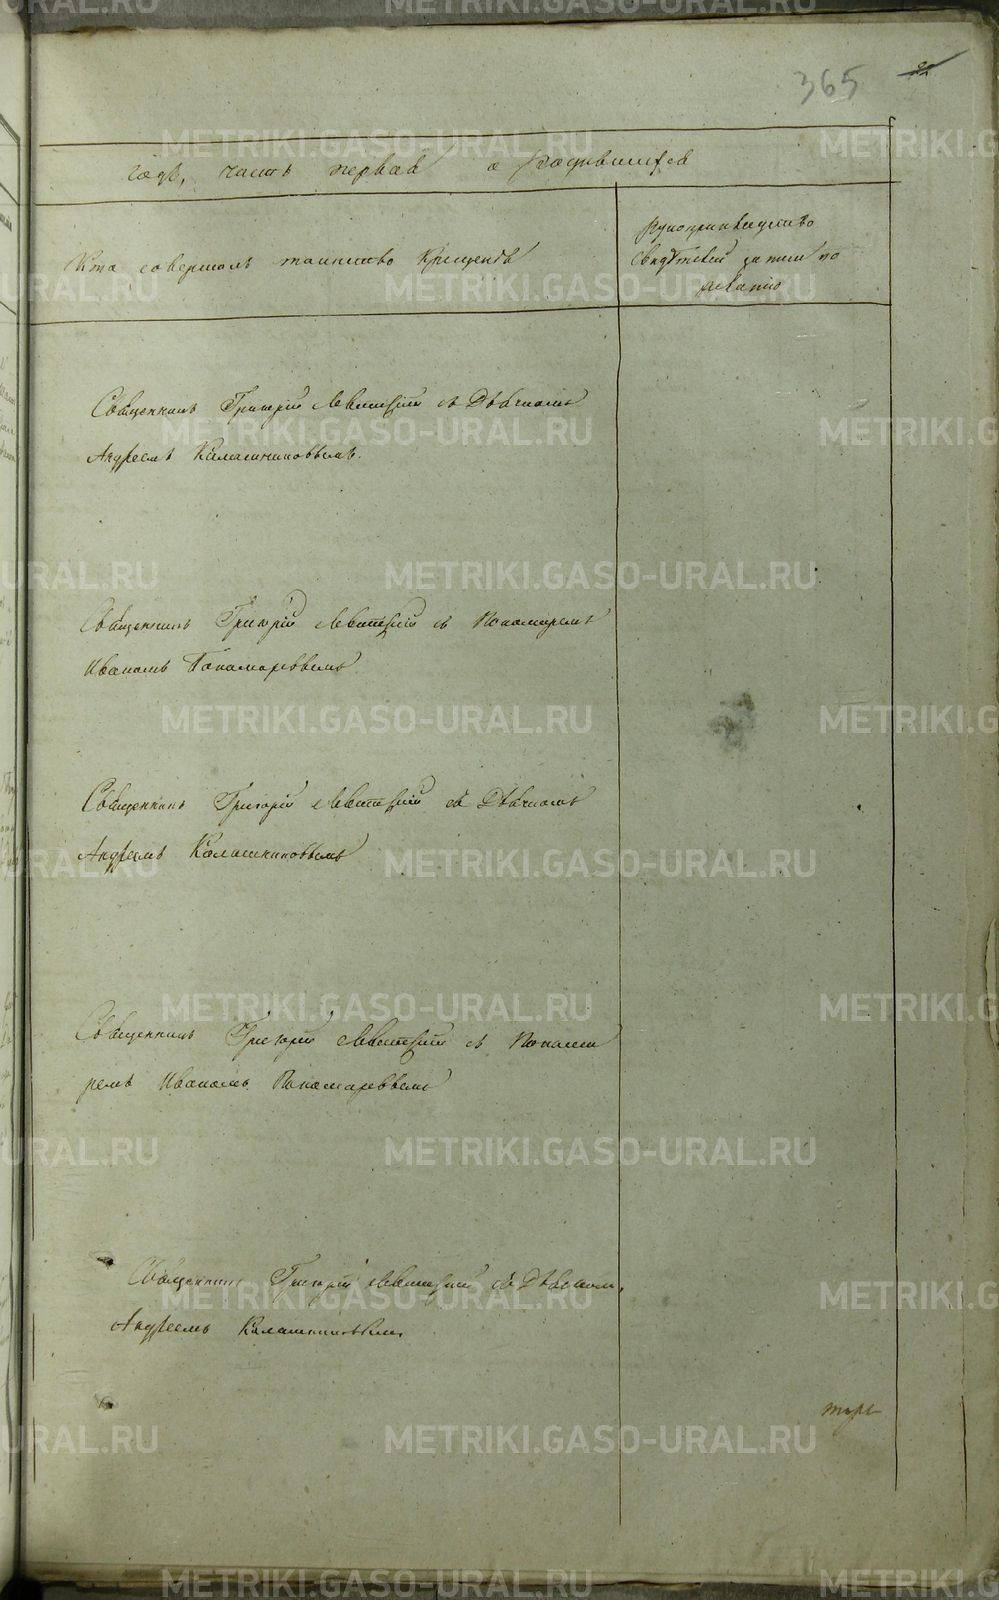 365
22
годъ, часть первая о родившихся
Кто совершалъ таинство Крещенія
рукоприкладство
свидѣтелей записи по
желанію
Священникъ Григорій Левитскій съ Дьячкомъ
Андреемъ Калашниковымъ.
Священникъ Григорій Левитскій съ Пономаремъ
Иваномъ Пономаревымъ
Священникъ Григорій Левитскій съ Дьячкомъ
Андреемъ Калашниковымъ
Священникъ Григорій Левитскій съ Понома
ремъ Иваномъ Пономаревымъ
Священникъ Григорій Левитскій съ Дьячкомъ,
Андреемъ Калашниковым.
METRIKI.GASO-URAL.RU